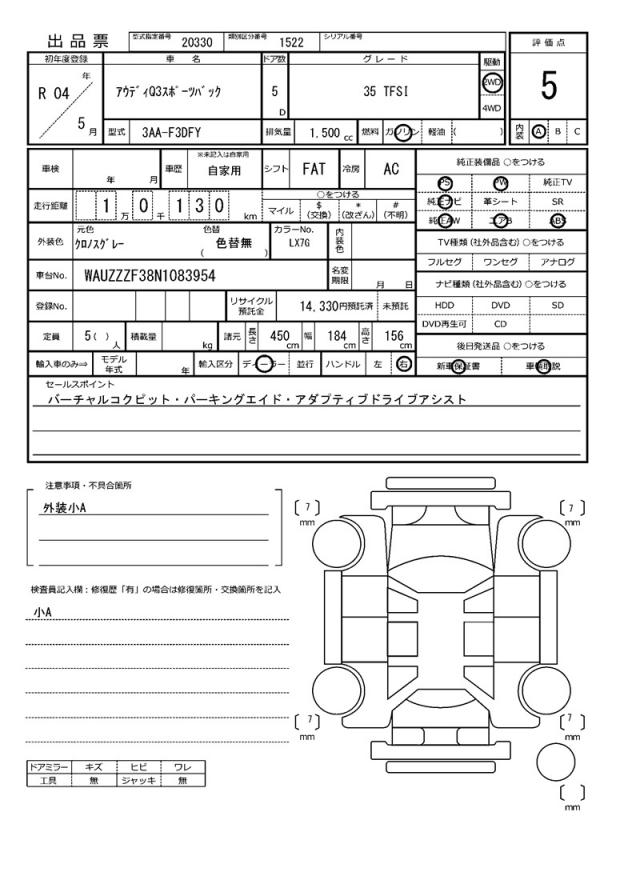 出品票 型式指定番号 20330 類別区分番号 1522 シリアル番号
初年度登録 車 名 ドア数 グレード 駆動 評価点
R 04 年 5 月 アウディQ3スポーツバック 5 D 35 TFSI 2WD 4WD 5
型式 3AA-F3DFY 排気量 1.500 cc 燃料 ガソリン 軽油 ( ) 内装 A B C
車検 年 月 車歴 ※未記入は自家用 自家用 シフト FAT 冷房 AC 純正装備品 ○をつける
PS PW 純正TV
走行距離 1 万 0 千 1 3 0 km ○をつける マイル $ (交換) * (改ざん) # (不明) 純正ナビ 革シート SR
純正AW エアB ABS
外装色 元色 クロノスグレー 色替 ( 色替無 ) カラーNo. LX7G 内装色 TV種類 (社外品含む) ○をつける
フルセグ ワンセグ アナログ
車台No. WAUZZZF38N1083954 名変期限 月 日 ナビ種類 (社外品含む) ○をつける
登録No. リサイクル預託金 14,330円預託済 未預託 HDD DVD SD
DVD再生可 CD
定員 5( ) 人 積載量 kg 諸元 長さ 450 cm 幅 184 cm 高さ 156 cm 後日発送品 ○をつける
輸入車のみ⇒ モデル年式 年 輸入区分 ディーラー 並行 ハンドル 左 右 新車保証書 車輌取説
セールスポイント
バーチャルコクピット・パーキングエイド・アダプティブドライブアシスト
注意事項・不具合箇所
外装小A
検査員記入欄：修復歴「有」の場合は修復箇所・交換箇所を記入
小A
ドアミラー キズ ヒビ ワレ
工具 無 ジャッキ 無
[ 7 ] mm [ 7 ] mm
[ 7 ] mm [ 7 ] mm
[ ] mm